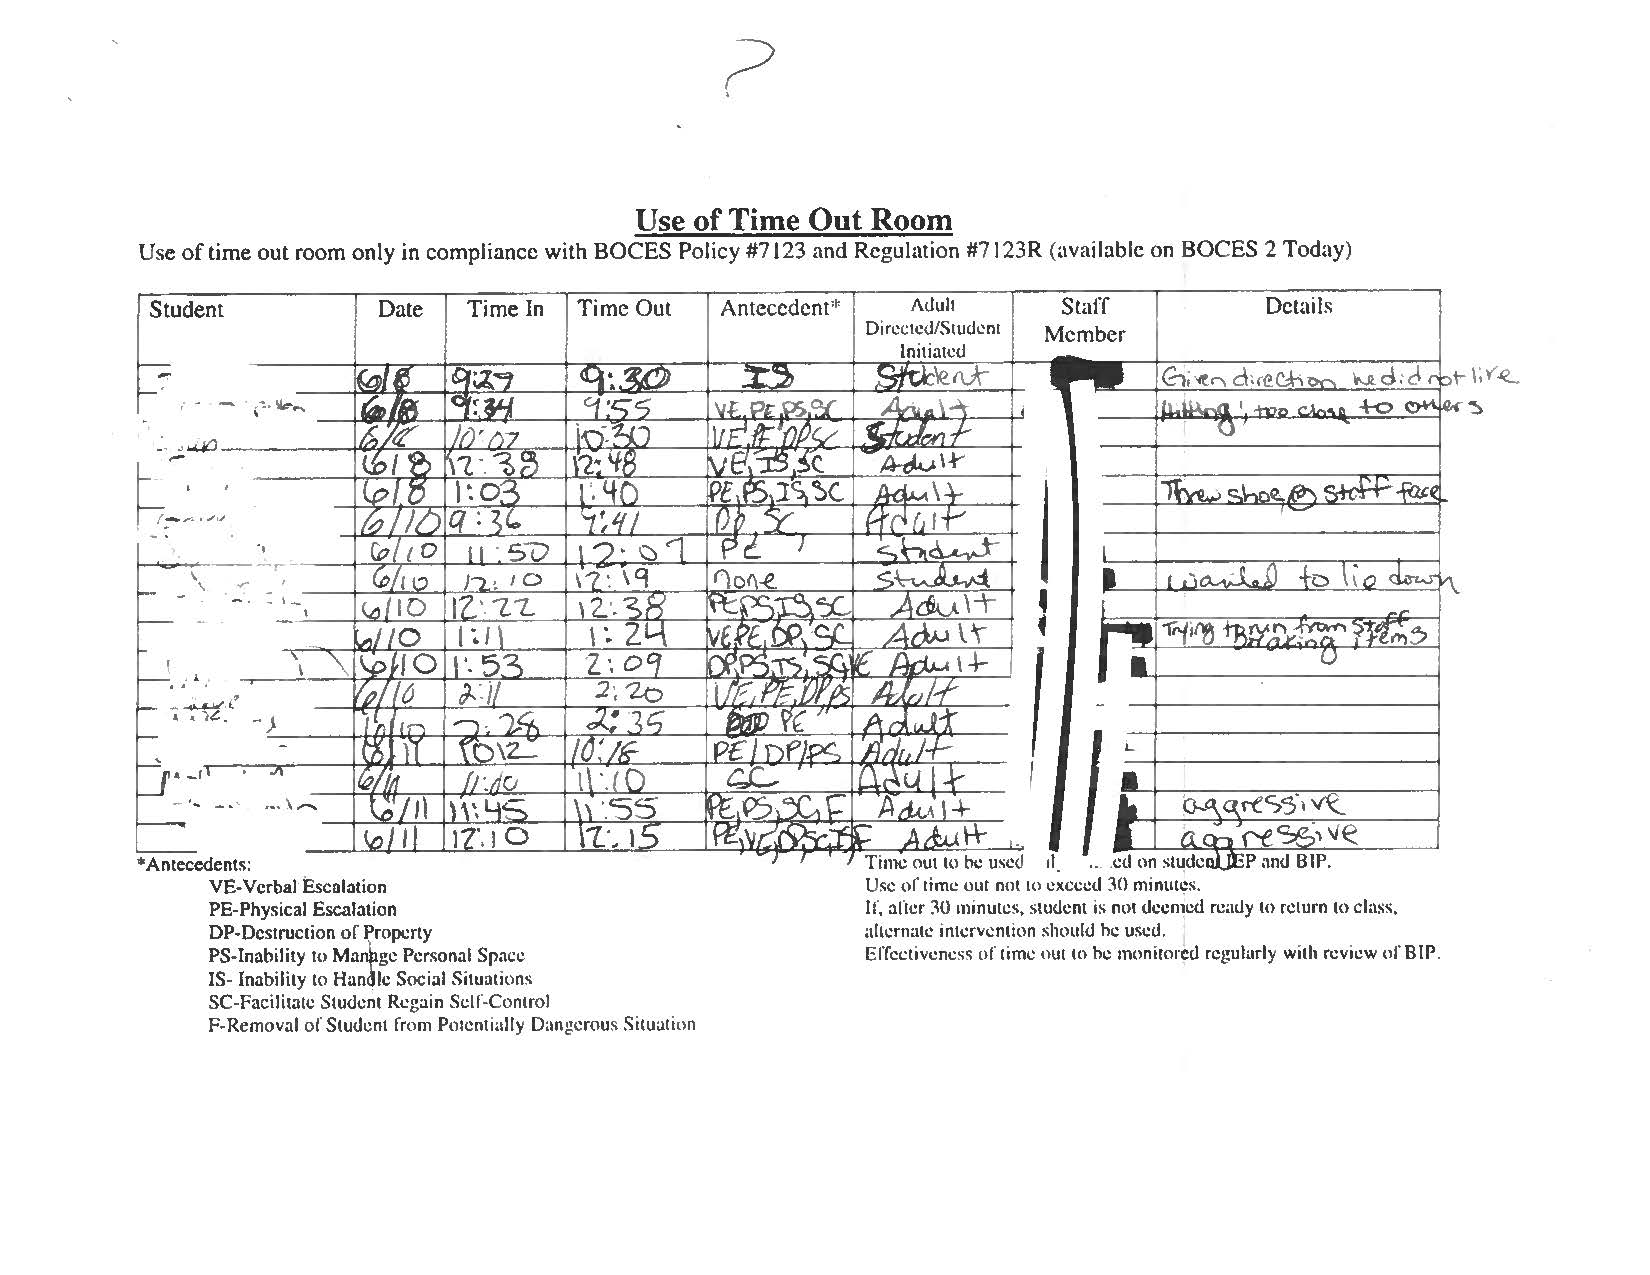 ?
Use of Time Out Room
Use of time out room only in compliance with BOCES Policy #7123 and Regulation #7123R (available on BOCES 2 Today)
Student Date Time In Time Out Antecedent* Adult Directed/Student Initiated Staff Member Details
6/8 9:27 9:30 IS Student Given direction he did not like
6/8 9:34 9:55 VE,PE,PS,SC Adult hitting, too close to others
6/8 10:07 10:30 VE,PE,DP,SC Student
6/8 12:38 12:48 VE,IS,SC Adult
6/8 1:03 1:40 PE,PS,IS,SC Adult Threw shoe @ staff face
6/10 9:36 9:41 DP,SC Adult
6/10 11:50 12:07 PE Student
6/10 12:10 12:19 none Student wanted to lie down
6/10 12:22 12:38 PE,PS,IS,SC Adult
6/10 1:11 1:24 VE,PE,DP,SC Adult Trying to run from staff breaking items
6/10 1:53 2:09 DP,PS,IS,SC,VE Adult
6/10 2:11 2:20 VE,PE,DP,PS Adult
6/10 2:28 2:35 PE Adult
6/11 1012 10:18 PE/DP/PS Adult
6/11 11:00 11:10 SC Adult
6/11 11:45 11:55 PE,PS,SC,F Adult aggressive
6/11 12:10 12:15 Adult aggressive
*Antecedents:
VE-Verbal Escalation
PE-Physical Escalation
DP-Destruction of Property
PS-Inability to Manage Personal Space
IS- Inability to Handle Social Situations
SC-Facilitate Student Regain Self-Control
F-Removal of Student from Potentially Dangerous Situation
Time out to be used on student IEP and BIP.
Use of time out not to exceed 30 minutes.
If, after 30 minutes, student is not deemed ready to return to class,
alternate intervention should be used.
Effectiveness of time out to be monitored regularly with review of BIP.